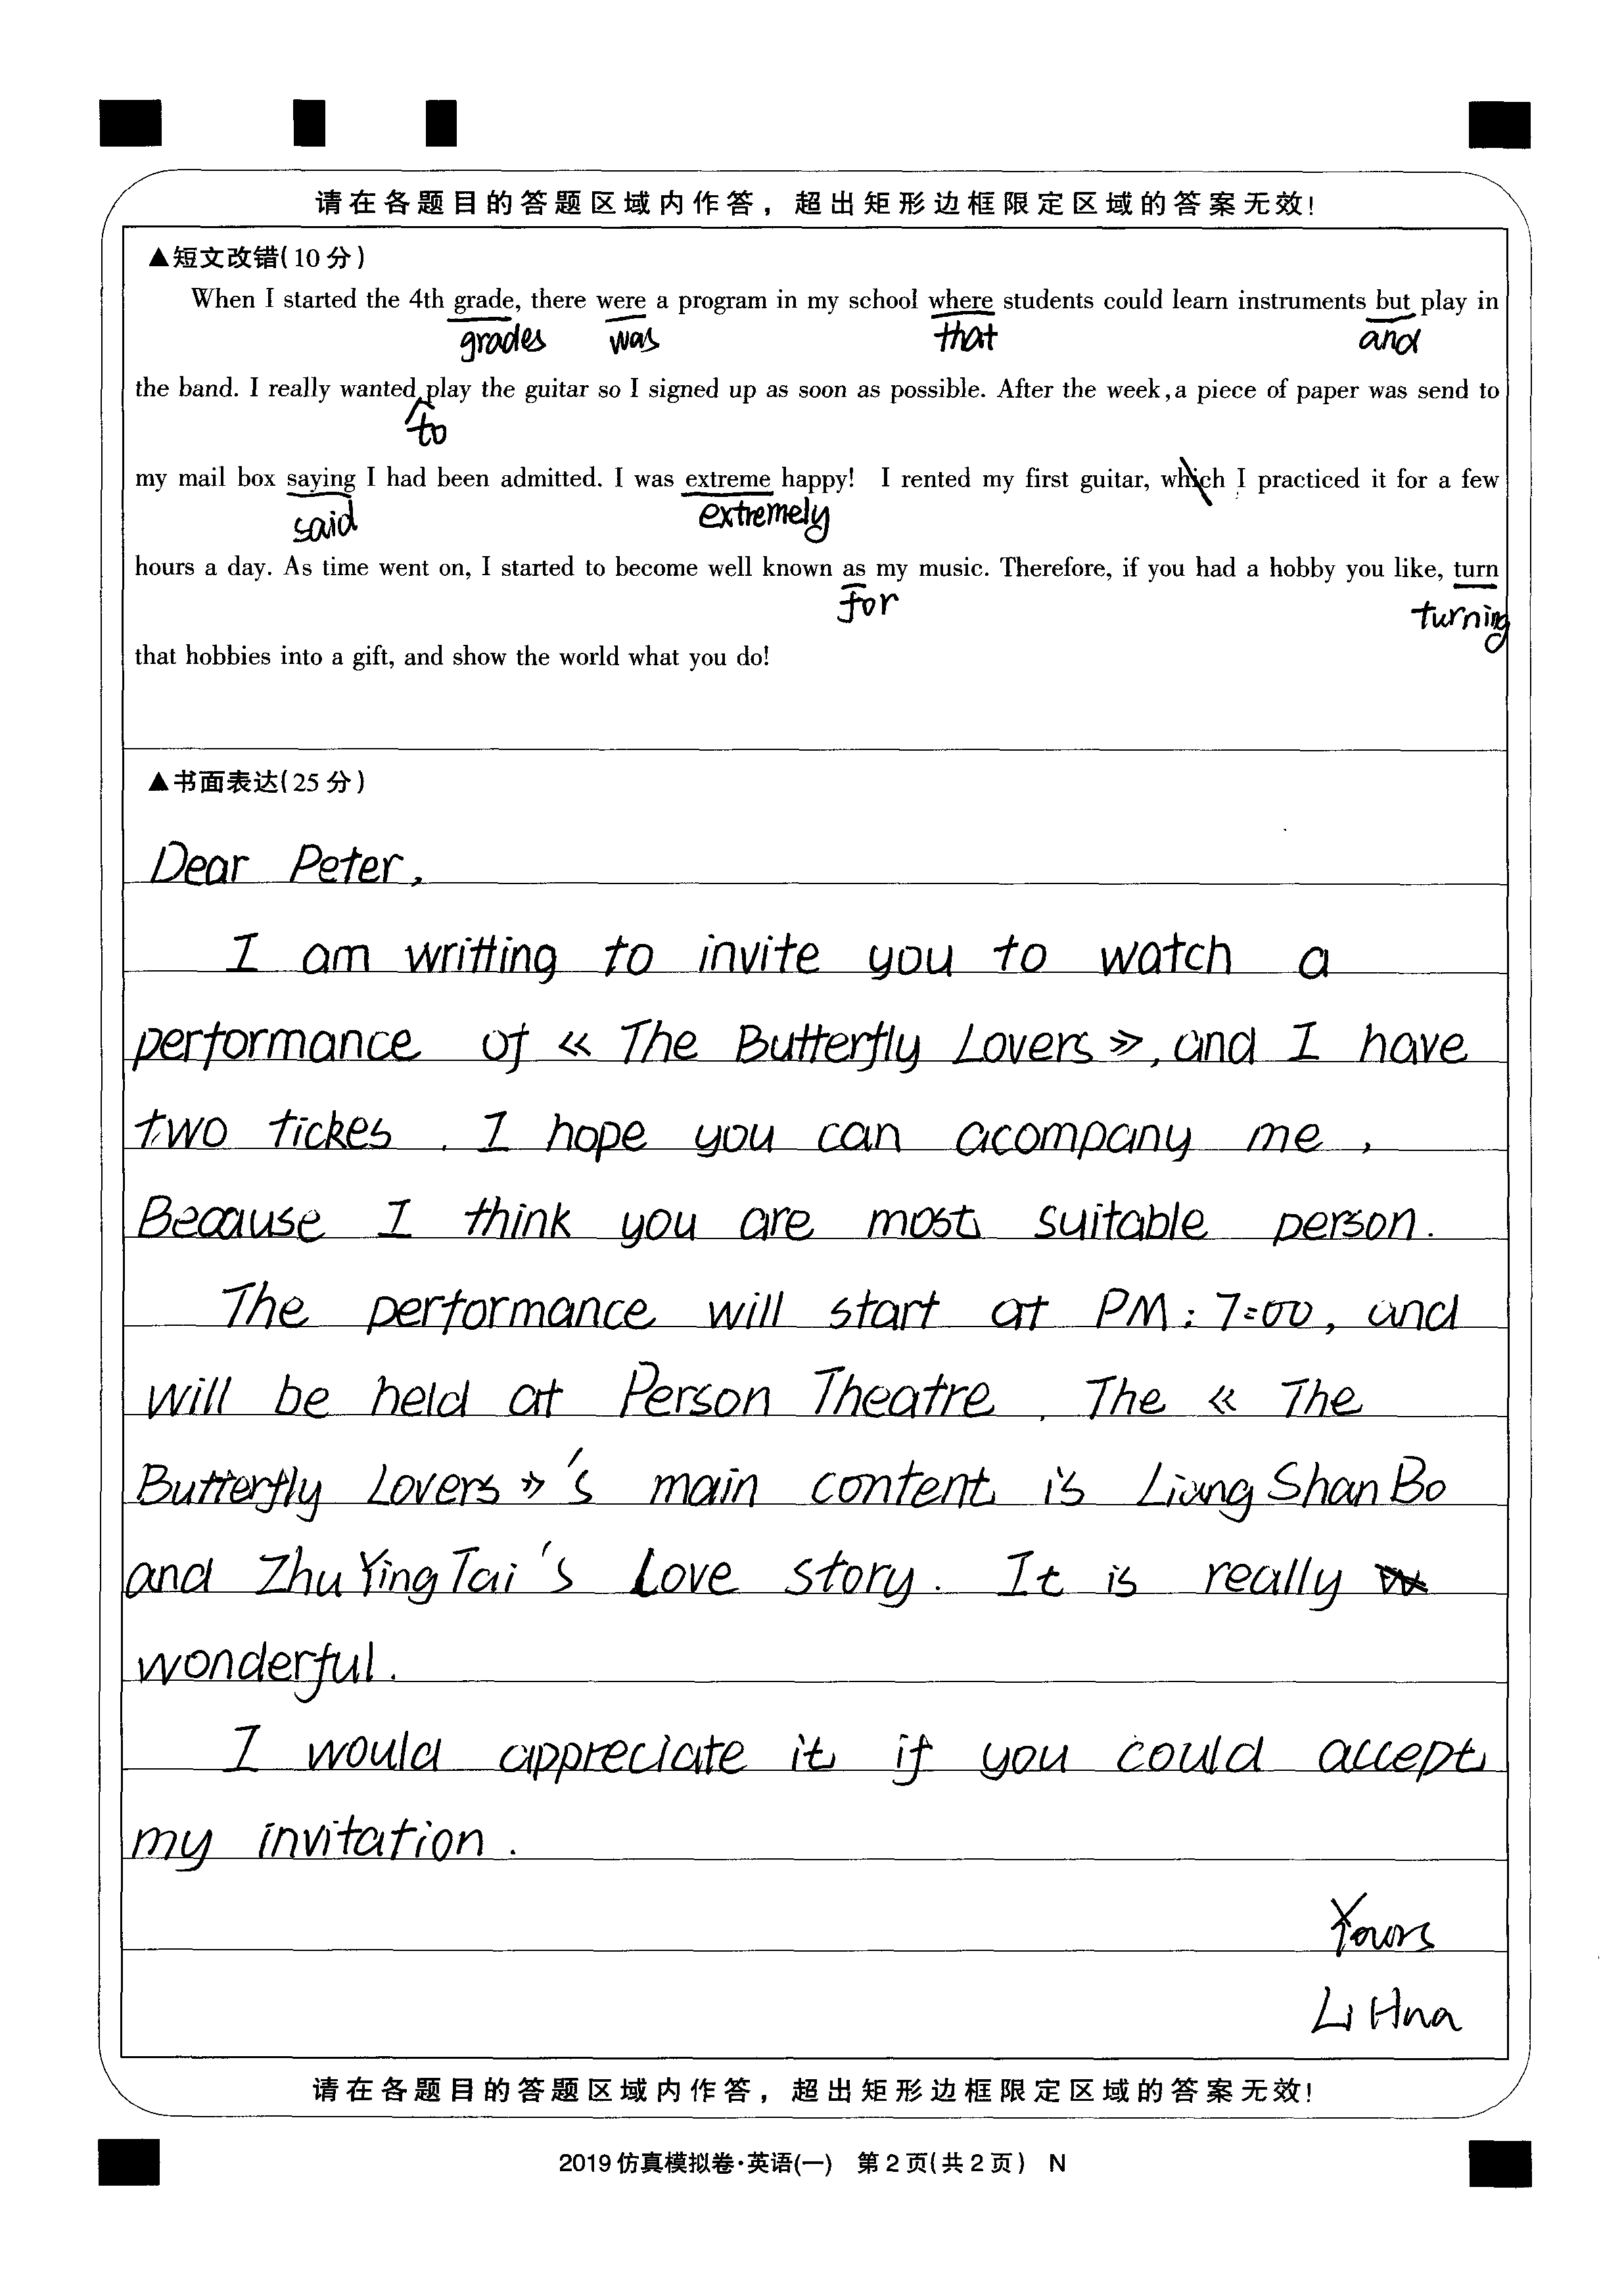 请在各题目的答题区域内作答，超出矩形边框限定区域的答案无效！
▲短文改错(10分)
When I started the 4th grade, there were a program in my school where students could learn instruments but play in
grades was that and
the band. I really wanted play the guitar so I signed up as soon as possible. After the week, a piece of paper was send to
to
my mail box saying I had been admitted. I was extreme happy! I rented my first guitar, which I practiced it for a few
said extremely
hours a day. As time went on, I started to become well known as my music. Therefore, if you had a hobby you like, turn
for turning
that hobbies into a gift, and show the world what you do!
▲书面表达(25分)
Dear Peter,
I am writting to invite you to watch a
performance of « The Butterfly Lovers », and I have
two tickes . I hope you can acompany me ,
Because I think you are most suitable person.
The performance will start at PM : 7:00, and
will be held at Person Theatre . The « The
Butterfly Lovers »'s main content is Liang Shan Bo
and Zhu Ying Tai's Love story. It is really
wonderful.
I would appreciate it if you could accept
my invitation .
Yours
Li Hna
请在各题目的答题区域内作答，超出矩形边框限定区域的答案无效！
2019仿真模拟卷·英语(一) 第2页(共2页) N